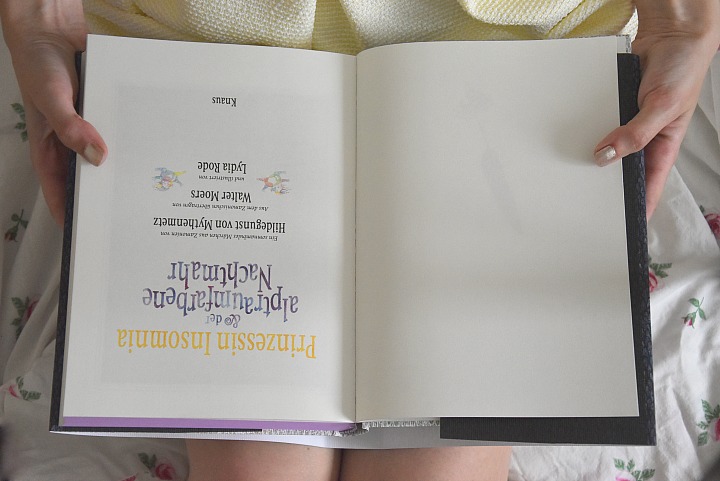 Prinzessin Insomnia
& der
alptraumfarbene
Nachtmahr
Ein somnambules Märchen aus Zamonien von
Hildegunst von Mythenmetz
Aus dem Zamonischen übertragen von
Walter Moers
und illustriert von
Lydia Rode
Knaus